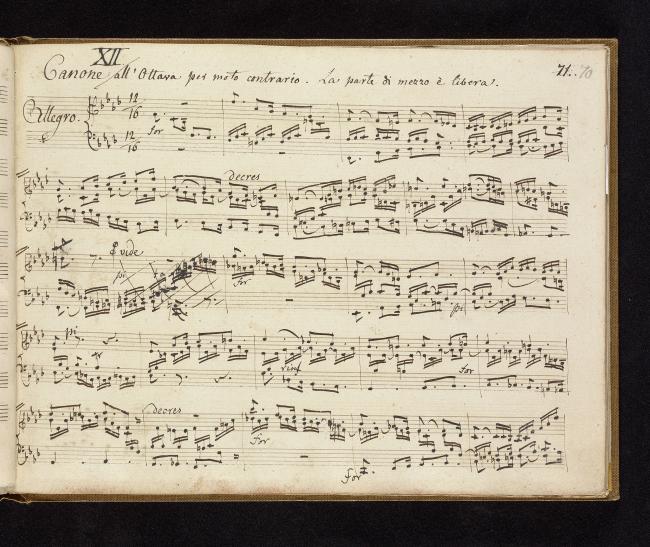 XII
Canone all' Ottava per moto contrario. La parte di mezzo è libera. 71. 70
Allegro.
12
16
12
16
for
decres
vide
pi
fo
for
pi
pi
rinf
for
decres
for
for